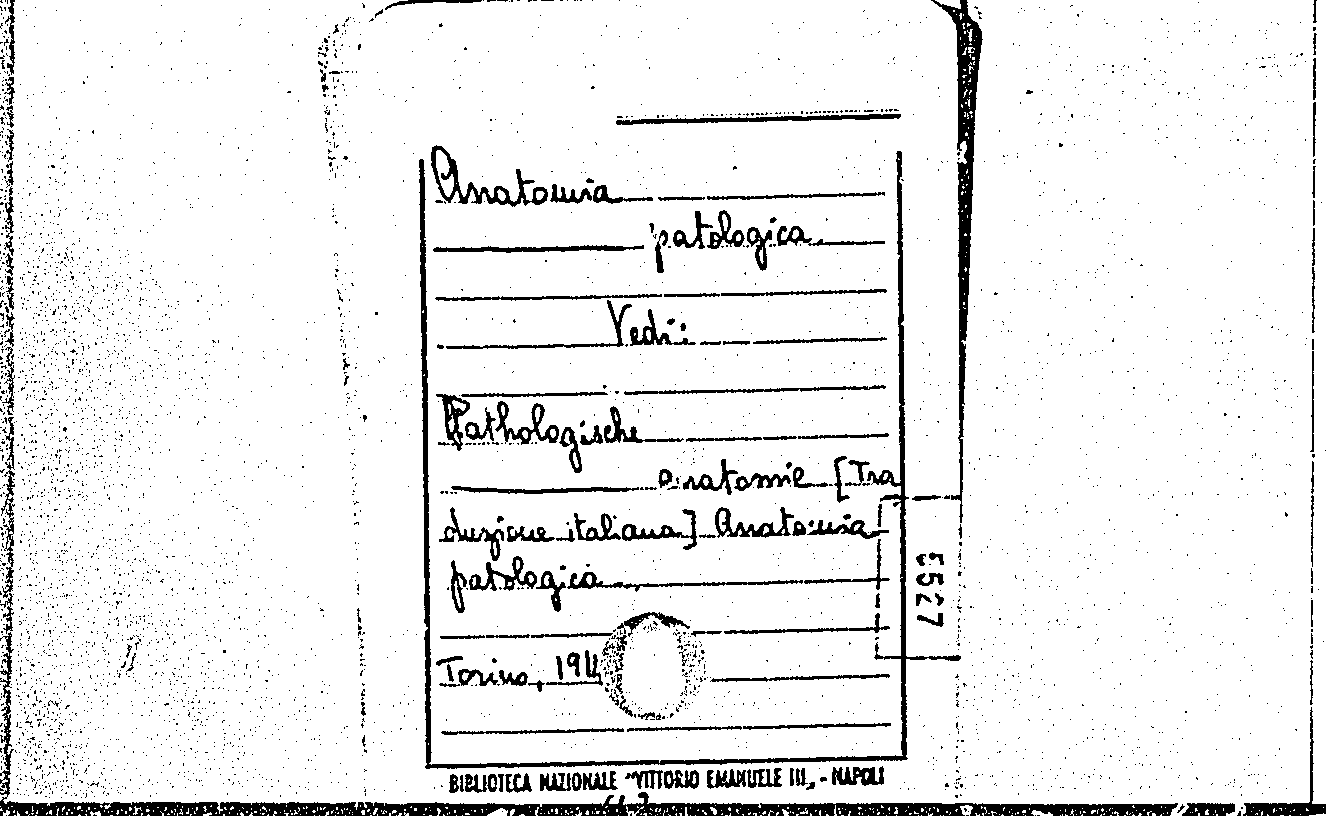 Anatomia
patologica.
Vedi:
Pathologische
anatomie [Tra
duzione italiana] Anatomia
patologica
Torino,
5527
BIBLIOTECA NAZIONALE "VITTORIO EMANUELE III„ - NAPOLI